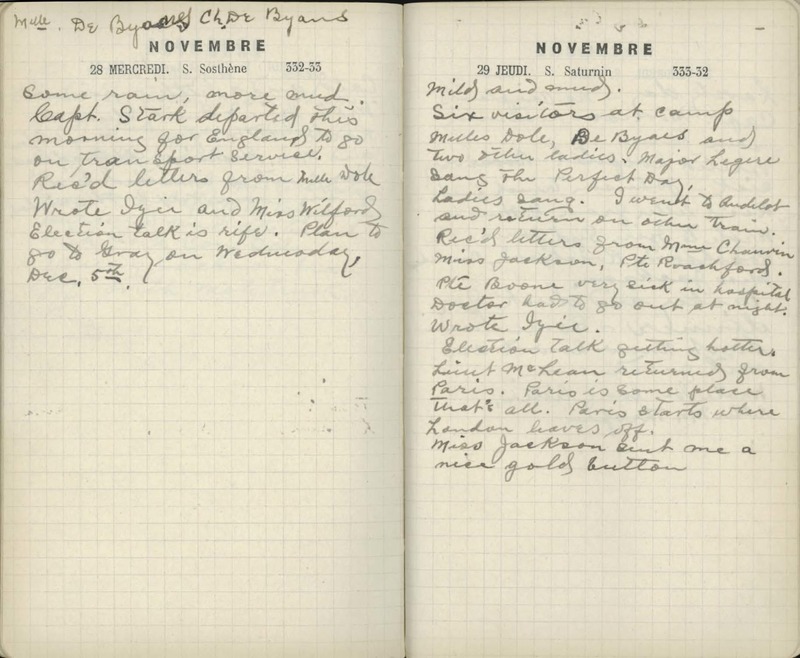 Mlle. De Byans Ch. De Byans
NOVEMBRE
28 MERCREDI. S. Sosthène 332-33
Some rain, more mud.
Capt. Stark departed this
morning for England to go
on transport service.
Rec'd letters from Mlle Dole
Wrote and Miss Wilford
Election talk is rife. Plan to
go to Gray on Wednesday,
Dec, 5th.
NOVEMBRE
29 JEUDI. S. Saturnin 333-32
Mild and mud.
Six visitors at camp
Melles Dole, De Byaes and
two other ladies. Major Legere
sang the Perfect Day,
Ladies sang. I went to Andelot
and return on other train.
Rec'd letters from Mme Chauvin
Miss Jackson, Pte Roachford.
Pte Boone very sick in hospital
Doctor had to go out at night.
Wrote
Election talk getting hotter.
Lieut McLean returned from
Paris. Paris is some place
that's all. Paris starts where
London leaves off.
Miss Jackson sent me a
nice gold button